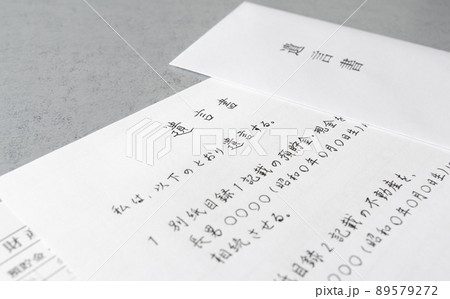 遺言書
遺言書
私は、以下のとおり遺言する。
1 別紙目録1記載の預貯金、現金を
長男〇〇〇〇(昭和0年0月0日生)に
相続させる。
紙目録2記載の不動産を、
〇〇〇〇(昭和0年0月0日生)
財
預貯金
pixta.jp - 89579272